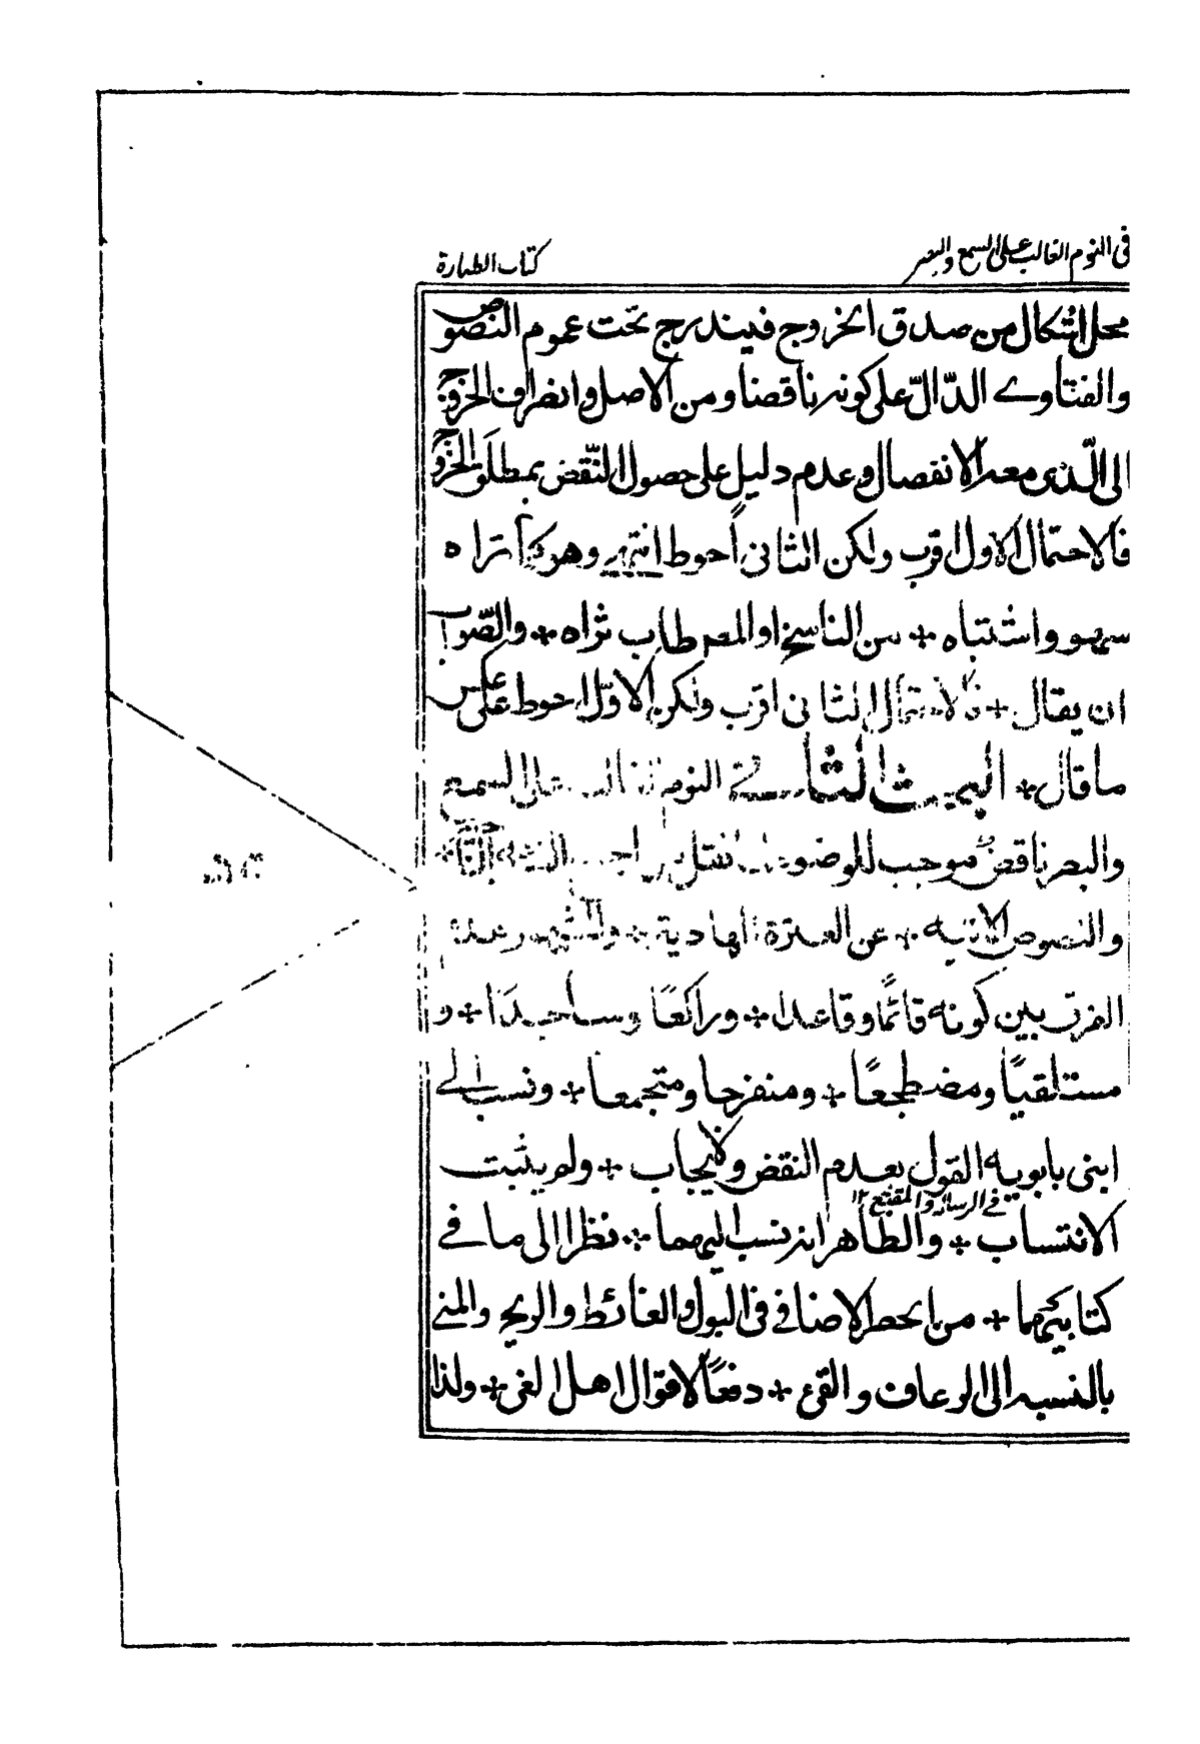 في النوم الغالب على السمع والبصر
كتاب الطهارة
محل اشكال من صدق الخروج فيندرج تحت عموم النصوص
والفتاوے الدّالّ على كونه ناقضا ومن الاصل وانصراف الخروج
الى الّذى معه الانفصال وعدم دليل على حصول النّقض بمطلق الخروج
فالاحتمال الاول اقرب ولكن الثانى احوط انتهى وهو كما تراه
سهو واشتباه + من الناسخ او المصـ طاب ثراه + والصّواب
ان يقال + فالاحتمال الثانى اقرب ولكن الاوّل احوط على عكس
ما قال + البحث الثا فے النوم الغالب على السمع
والبصر ناقض موجب للوضوء
والنصوص الاتيه + عن العترة الهادية + والمشهور عدم
الفرق بين كونه قائمًا وقاعدا + وراكعًا وساجدًا + و
مستلقيًا ومضطجعًا + ومنفرجا ومتجمعا + ونسب الے
ابنى بابويه القول بعدم النقض ولايجاب + ولم يثبت
في الرسالة والمقنع ١٢
الانتساب + والظاهر انه نسب اليهما + نظرا الى ما فے
كتابيهما + من الحصر الاضافے فى البول والغائط والريح والمنے
بالنسبه الى الرعاف والقئ + دفعًا لاقوال اهل الغى + ولذا